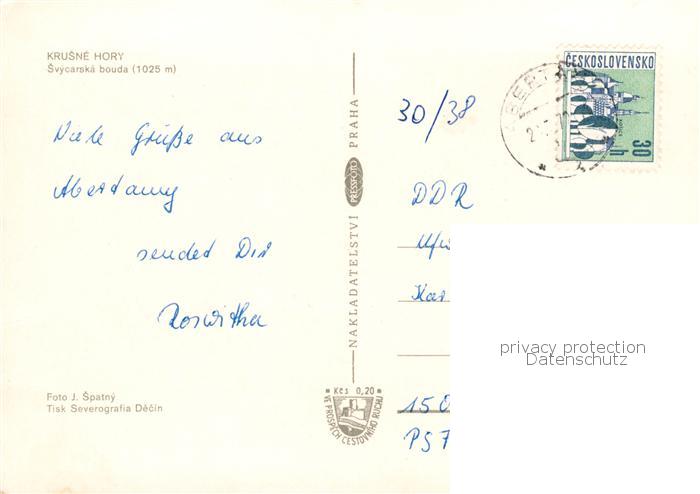 KRUŠNÉ HORY
Švýcarská bouda (1025 m)
Viele Grüße aus
Abertamy
sendet Dir
Roswitha
Foto J. Špatný
Tisk Severografia Děčín
NAKLADATELSTVÍ PRESSFOTO PRAHA
Kčs 0,20
VE PROSPĚCH CESTOVNÍHO RUCHU
30/38
ČESKOSLOVENSKO
30 h
DDR
Kar
150
PS7
privacy protection
Datenschutz